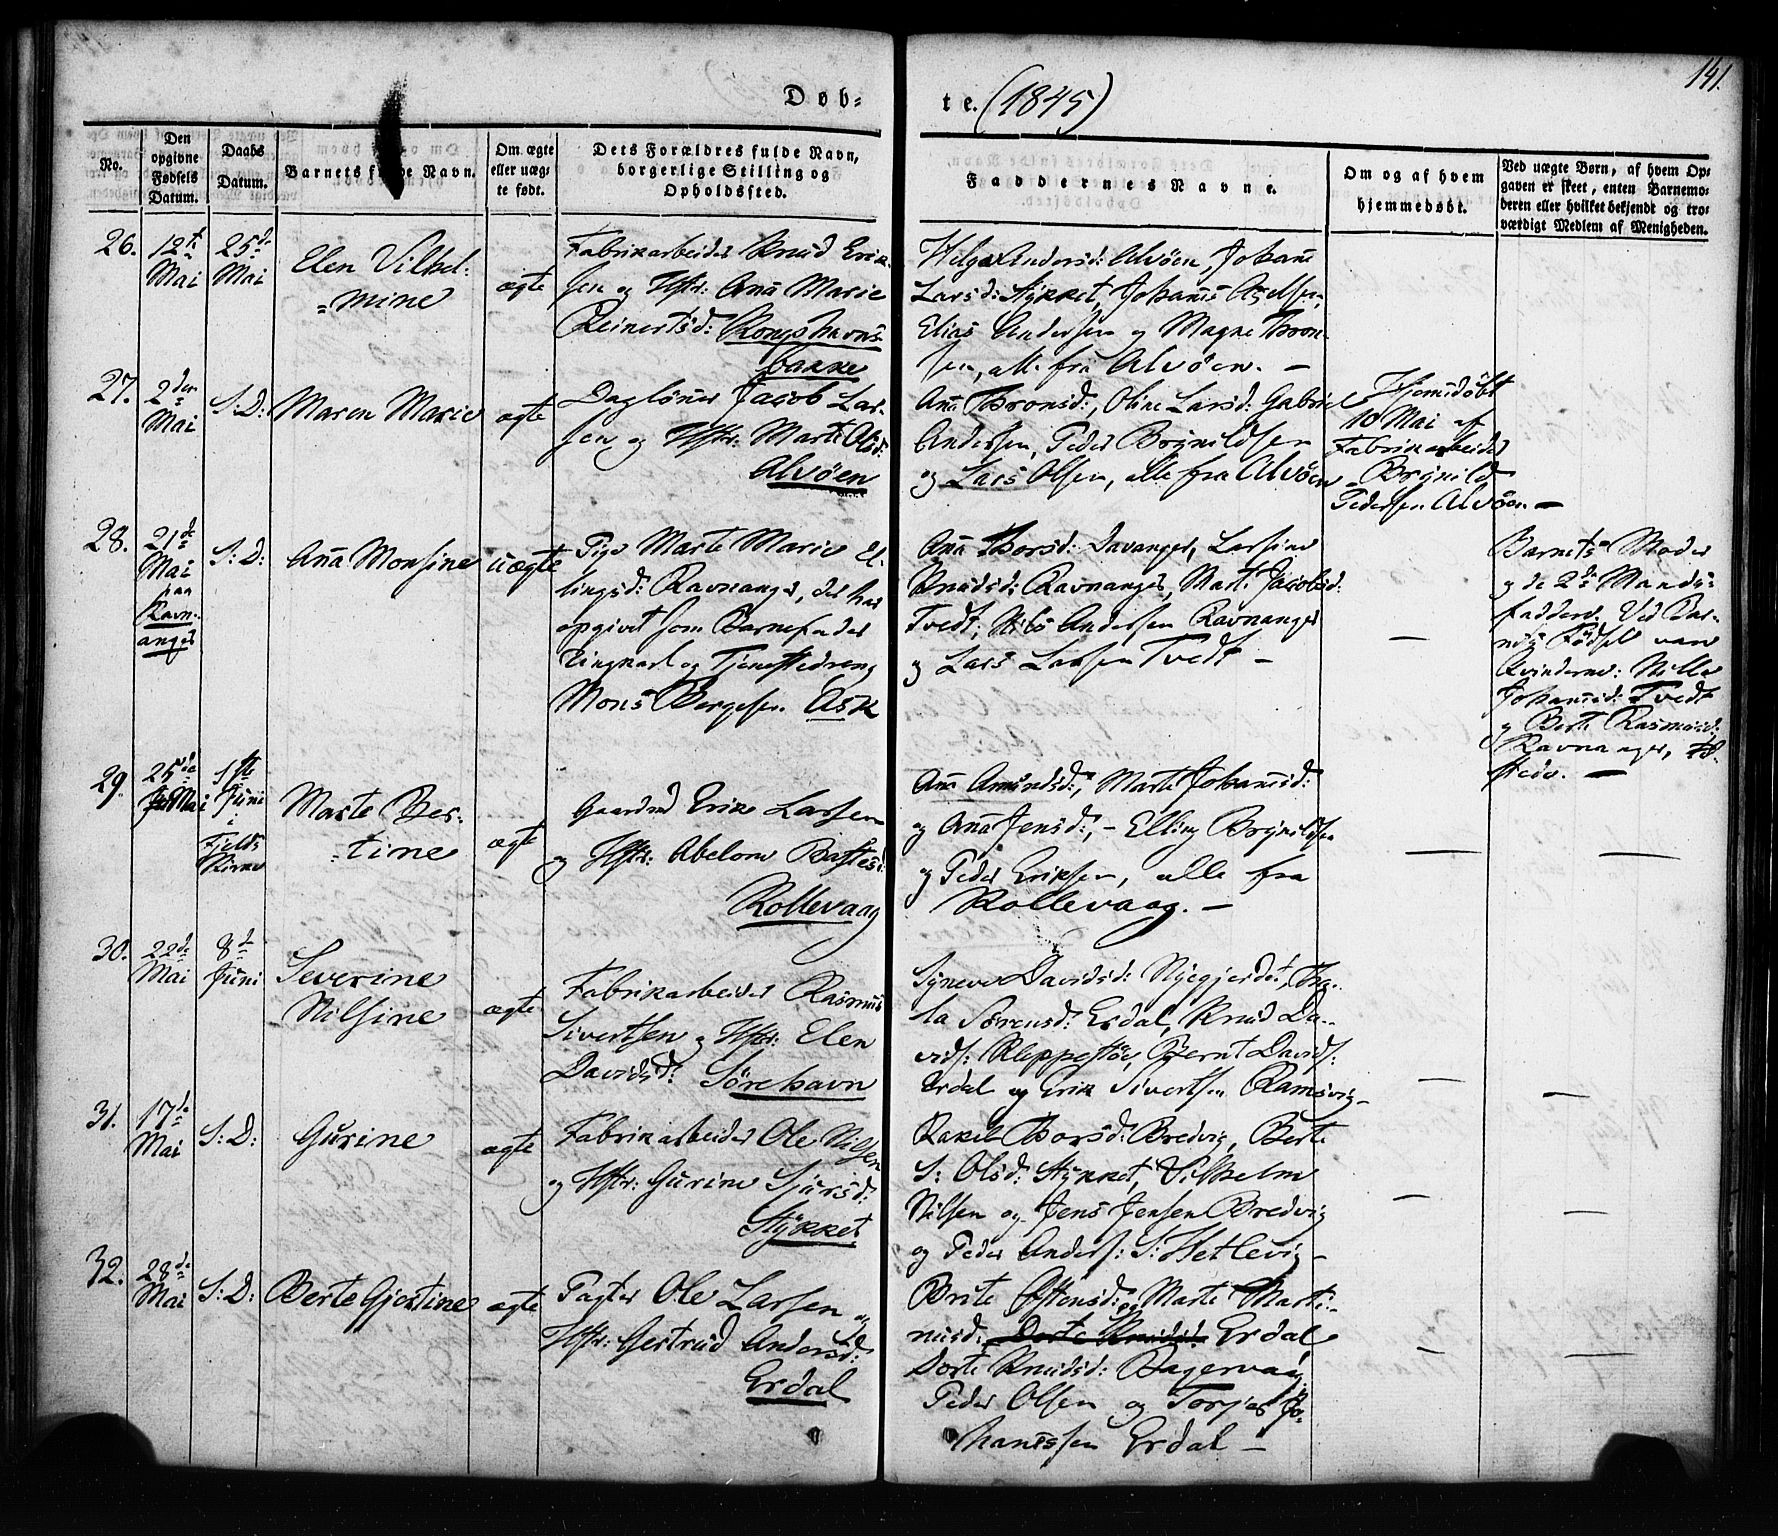 141.
Døb-
te. (1845)
No.
Den
opgivne
Fødsels
Datum.
Daabs
Datum.
Barnets fulde Navn.
Om ægte
eller uæg-
te født.
Dets Forældres fulde Navn,
borgerlige Stilling og
Opholdssted.
Faddernes Navne.
Om og af hvem
hjemmedøbt.
Ved uægte Børn, af hvem Op-
gaven er skeet, enten Barnemo-
deren eller hvilket bekjendt og tro-
værdigt Medlem af Menigheden.
26.
12te
Mai
25de
Mai
Elen Vilhel-
=mine
ægte
Fabrikarbeider Knud Erik-
sen og Hstr: Ana Marie
Reinertsd: Kongshavns-
bakke
Helga Andersd: Alvøen, Johane
Larsd: Stykket, Johanes Axelsen,
Elias Andersen og Magne Thron-
sen, alle fra Alvøen. —
27.
2den
Mai
S: D:
Maren Marie
ægte
Dagløner Jacob Lar-
sen og Hstr: Marte Olsd:
Alvøen
Ana Thronsd:, Oline Larsd: Gabriel
Andersen, Peder Brynildsen
og Lars Olsen, alle fra Alvøen
Hjemdøbt
10 Mai af
Fabrikarbeider
Brynild
Pedersen Alvøen —
28.
21de
Mai
paa
Ravn-
anger
S: D:
Ana Monsine
uægte
Pige Marte Marie El-
lingsd: Ravnanger, der har
opgivet som Barnefader
Ungkarl og Tjenestedreng
Mons Børgesen Ask
Ana Thorsd: Davanger, Larsine
Knudsd: Ravnanger, Marte Jacobsd:
Tvedt, Nils Andersen Ravnanger
og Lars Larsen Tvedt —
—
Barnets Moder
og de 2de Mands-
faddere. Ved Bar-
nets Fødsel vare
Kvinderne: Nille
Johanesd: Tvedt
og Berte Rasmusd:
Ravnanger, til-
stede. —
29.
25de
Mai
1ste
Juni
i
Fjelds
Kirke
Marte Ber-
=tine
ægte
Gaardmd Erik Larsen
og Hstr: Abelone Bastesd:
Rollevaag
Ana Amundsd:, Marte Johanesd:
og Ana Jensd:, — Elling Brynildsen
og Peder Eriksen, alle fra
Rollevaag. —
—
—
30.
22de
Mai
8de
Juni
Severine
Nilsine
ægte
Fabrikarbeider Rasmus
Sivertsen og Hstr: Elen
Davidsd: Sørehavn
Syneve Davidsd: Nyegjerdet, Tha-
la Sørensd: Erdal, Knud Da-
vids: Kleppestøe, Bernt Davids:
Erdal og Erik Sivertsen Ramsvig —
—
—
31.
17de
Mai
S: D:
Gurine
ægte
Fabrikarbeider Ole Nilsen
og Hstr: Gurine Sjursd:
Stykket
Rakel Thorsd: Bredvig, Berte
S: Olsd: Stykket, Vilhelm
Nilsen og Jens Jensen Bredvig
og Peder Anders: S: Hetlevig —
—
—
32.
28de
Mai
S: D:
Berte Gjertine
ægte
Pagter Ole Larsen og
Hstr: Gertrud Andersd:
Erdal
Brite Østensd: og Marte Marti-
nusd: Dorte Knudsd: Erdal
Dorte Knudsd: Bagervaag
Peder Olsen og Torjer Jo-
hanessen Erdal —
—
—